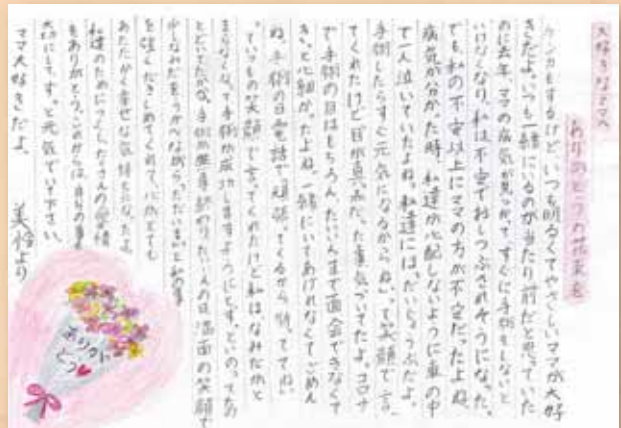 大好きなママへ
ありがとうの花束を
ケンカもするけど、いつも明るくてやさしいママが大好
きだよ。いつも一緒にいるのが当たり前だと思っていた
のに去年、ママの病気が見つかって、すぐに手術をしないと
いけなくなり、私は不安でおしつぶされそうになった。
でも私の不安以上にママの方が不安だったよね。
病気が分かった時、私達が心配しないように車の中
で一人泣いていたよね。私達には、だいじょうぶだよ。
手術したらすぐ元気になるからね。って笑顔で言っ
てくれたけど目が真っ赤だった事気づいてたよ。コロナ
で手術の日はもちろんたいいんまで面会できなくて
きっと心細かったよね。一緒にいてあげれなくてごめん
ね。手術の日電話で頑張ってくるから待っててね
っていつもの笑顔で言ってくれたけど私はなみだがと
まらなくって手術が成功しますようにとずっといのってたの
とどいてたかな。手術が無事終わりたいいんの日満面の笑顔で
少しなみだをうかべながら、ただいまと私の事
を強くだきしめてくれて、心がとても
あたたかく幸せな気持ちになったよ
私達のためにたくさんの愛情
をありがとう。これからは、自分の事も
大切にして、ずっと元気でいて下さい。
ママ大好きだよ。
美怜より
ありがとう